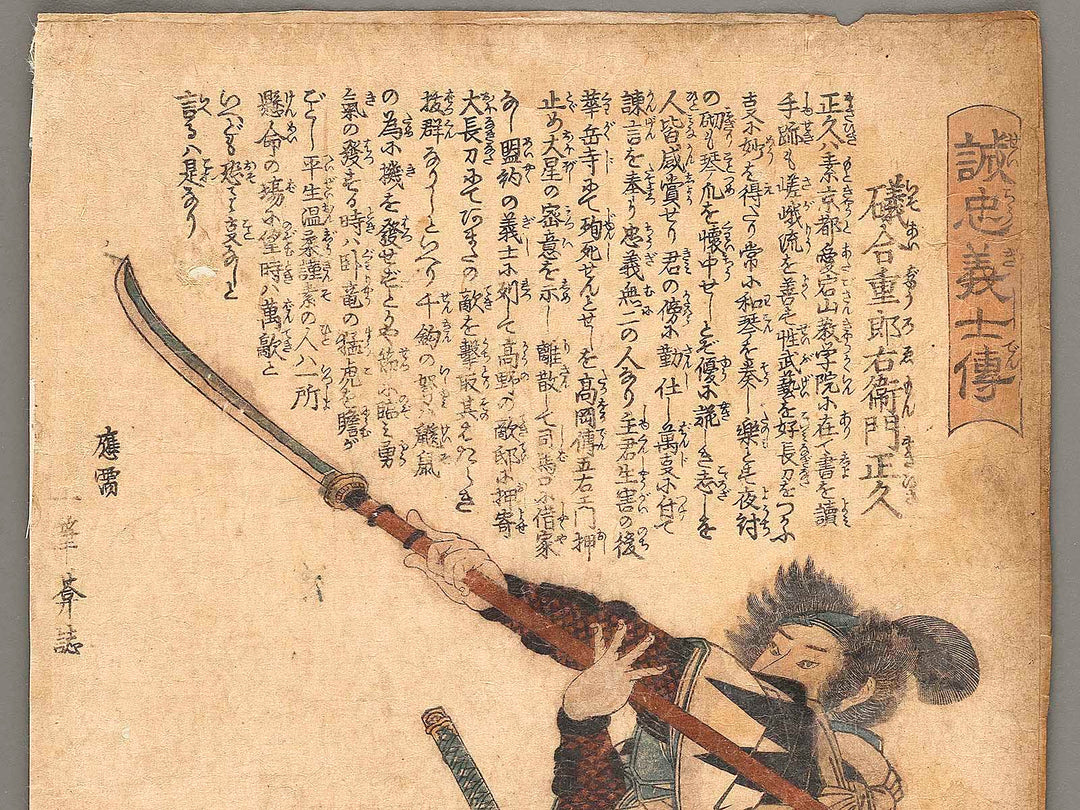 誠忠義士傳
礒合重郎右衛門正久
正久ハ素京都愛宕山教学院に在て書を讀
手跡も嵯峨流を善す性武藝を好長刀をつかふ
事に妙を得たり常に和琴を奏し樂とす夜討
の砌も琴爪を懐中せしとぞ優に艶しき志しを
人皆感賞せり君の傍に勤仕し萬事に付て
諫言を奉り忠義無二の人なり主君生害の後
華岳寺にて殉死せんとせしを高岡傳五右エ門押
止め大星の密意を示し離散して司馬口に借家
なし盟約の義士に列して高野の敵邸に押寄
大長刀にてあまたの敵を撃取其はたらき
抜群なりしといへり千鈞の弩ハ鼷鼠
の為に機を發せずとかや節に臨ミ勇
氣の發する時ハ卧竜の猛虎を瞻が
ごとし平生温柔謹素の人ハ一所
懸命の場に望時ハ萬敵と
いへども恐るる事なしと
言るハ是なり
應需
一筆菴誌